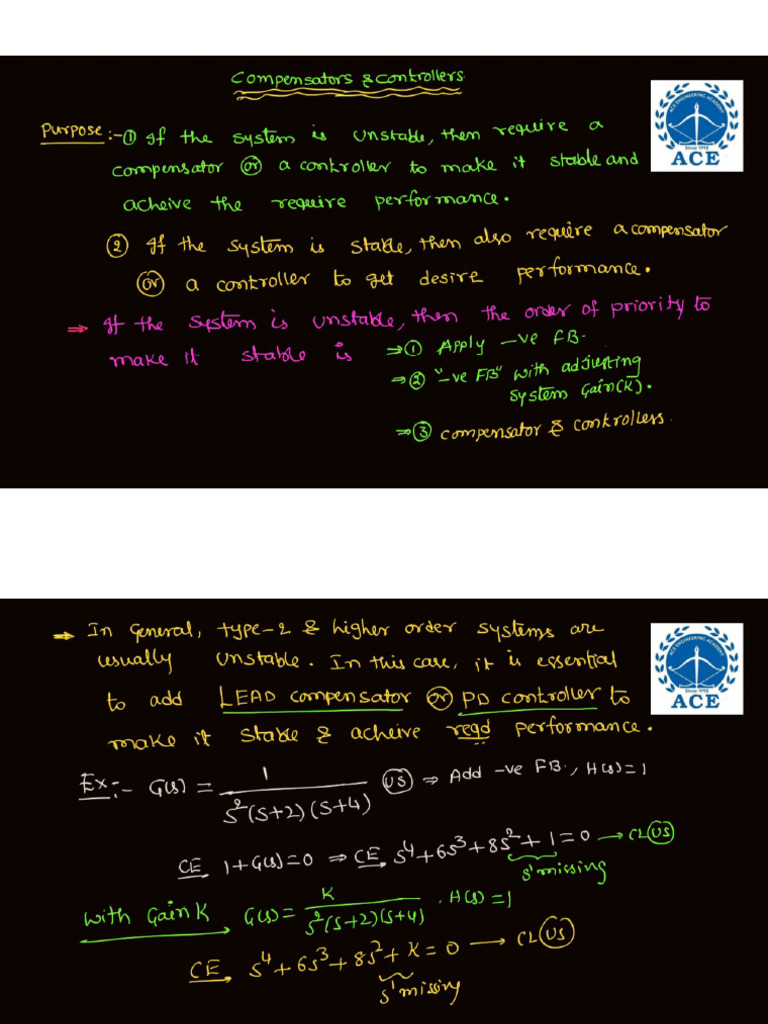 Compensators & Controllers
ACE ENGINEERING ACADEMY
Since 1995
ACE
Purpose :- ① If the system is unstable, then require a
compensator (or) a controller to make it stable and
acheive the require performance.
② If the system is stable, then also require a compensator
(or) a controller to get desire performance.
⇒ If the system is unstable, then the order of priority to
make it stable is ⇒ ① Apply -ve FB.
⇒ ② "-ve FB" with adjusting
system Gain(K).
⇒ ③ compensator & controllers.
⇒ In General, type-2 & higher order systems are
usually unstable. In this case, it is essential
to add LEAD compensator (or) PD controller to
make it stable & acheive reqd performance.
ACE ENGINEERING ACADEMY
Since 1995
ACE
Ex:- G(s) = 1 / s²(s+2)(s+4) (US) ⇒ Add -ve FB., H(s)=1
CE 1+G(s)=0 ⇒ CE s⁴+6s³+8s²+1=0 → CL (US)
s¹ missing
With Gain K G(s) = K / s²(s+2)(s+4) . H(s)=1
CE s⁴+6s³+8s²+K=0 → CL (US)
s¹ missing